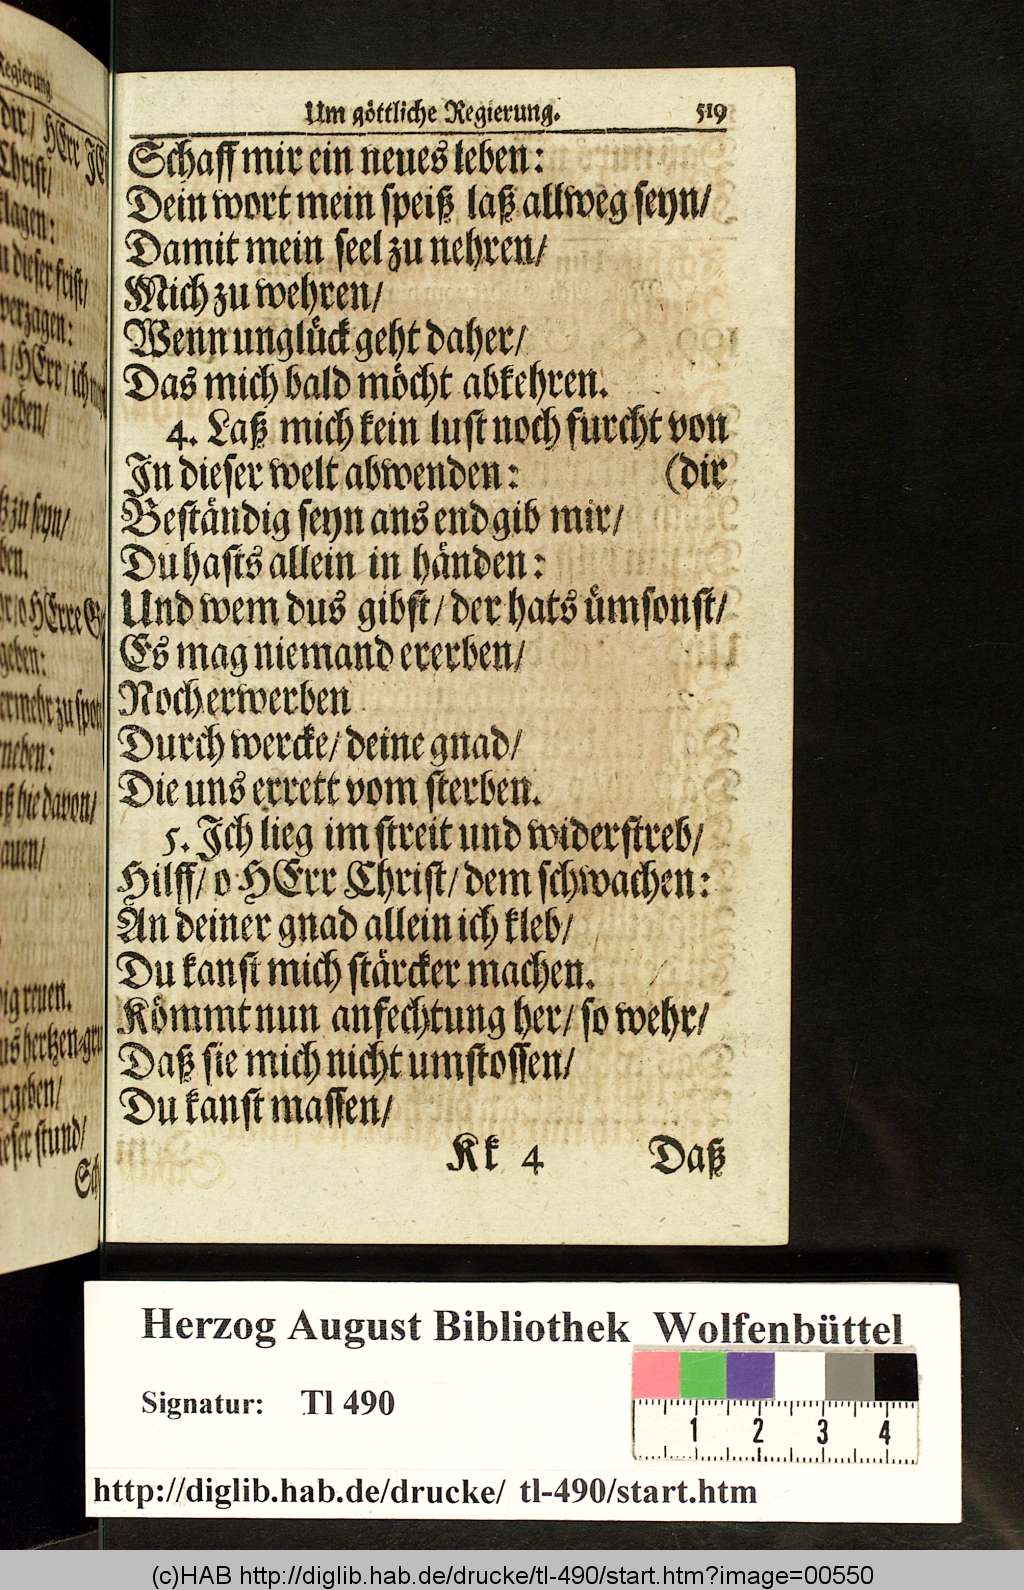 Um göttliche Regierung. 519
Schaff mir ein neues leben:
Dein wort mein speiß laß allweg seyn/
Damit mein seel zu nehren/
Mich zu wehren/
Wenn unglück geht daher/
Das mich bald möcht abkehren.
4. Laß mich kein lust noch furcht von
In dieser welt abwenden: (dir
Beständig seyn ans end gib mir/
Du hasts allein in händen:
Und wem dus gibst/ der hats ümsonst/
Es mag niemand ererben/
Noch erwerben
Durch wercke/ deine gnad/
Die uns errett vom sterben.
5. Ich lieg im streit und widerstreb/
Hilff/ o HErr Christ/ dem schwachen:
An deiner gnad allein ich kleb/
Du kanst mich stärcker machen.
Kömmt nun anfechtung her/ so wehr/
Daß sie mich nicht umstossen/
Du kanst massen/
Kk 4 Daß
Regierung
dir/ HErr
Christ/
klagen:
dieser frist/
verzagen:
HErr/ ich
geben/
zu seyn/
o HErre
geben:
zu
neben:
hie davon/
reuen.
stund/
Sch
Herzog August Bibliothek Wolfenbüttel
Signatur: Tl 490
1 2 3 4
http://diglib.hab.de/drucke/ tl-490/start.htm
(c)HAB http://diglib.hab.de/drucke/tl-490/start.htm?image=00550